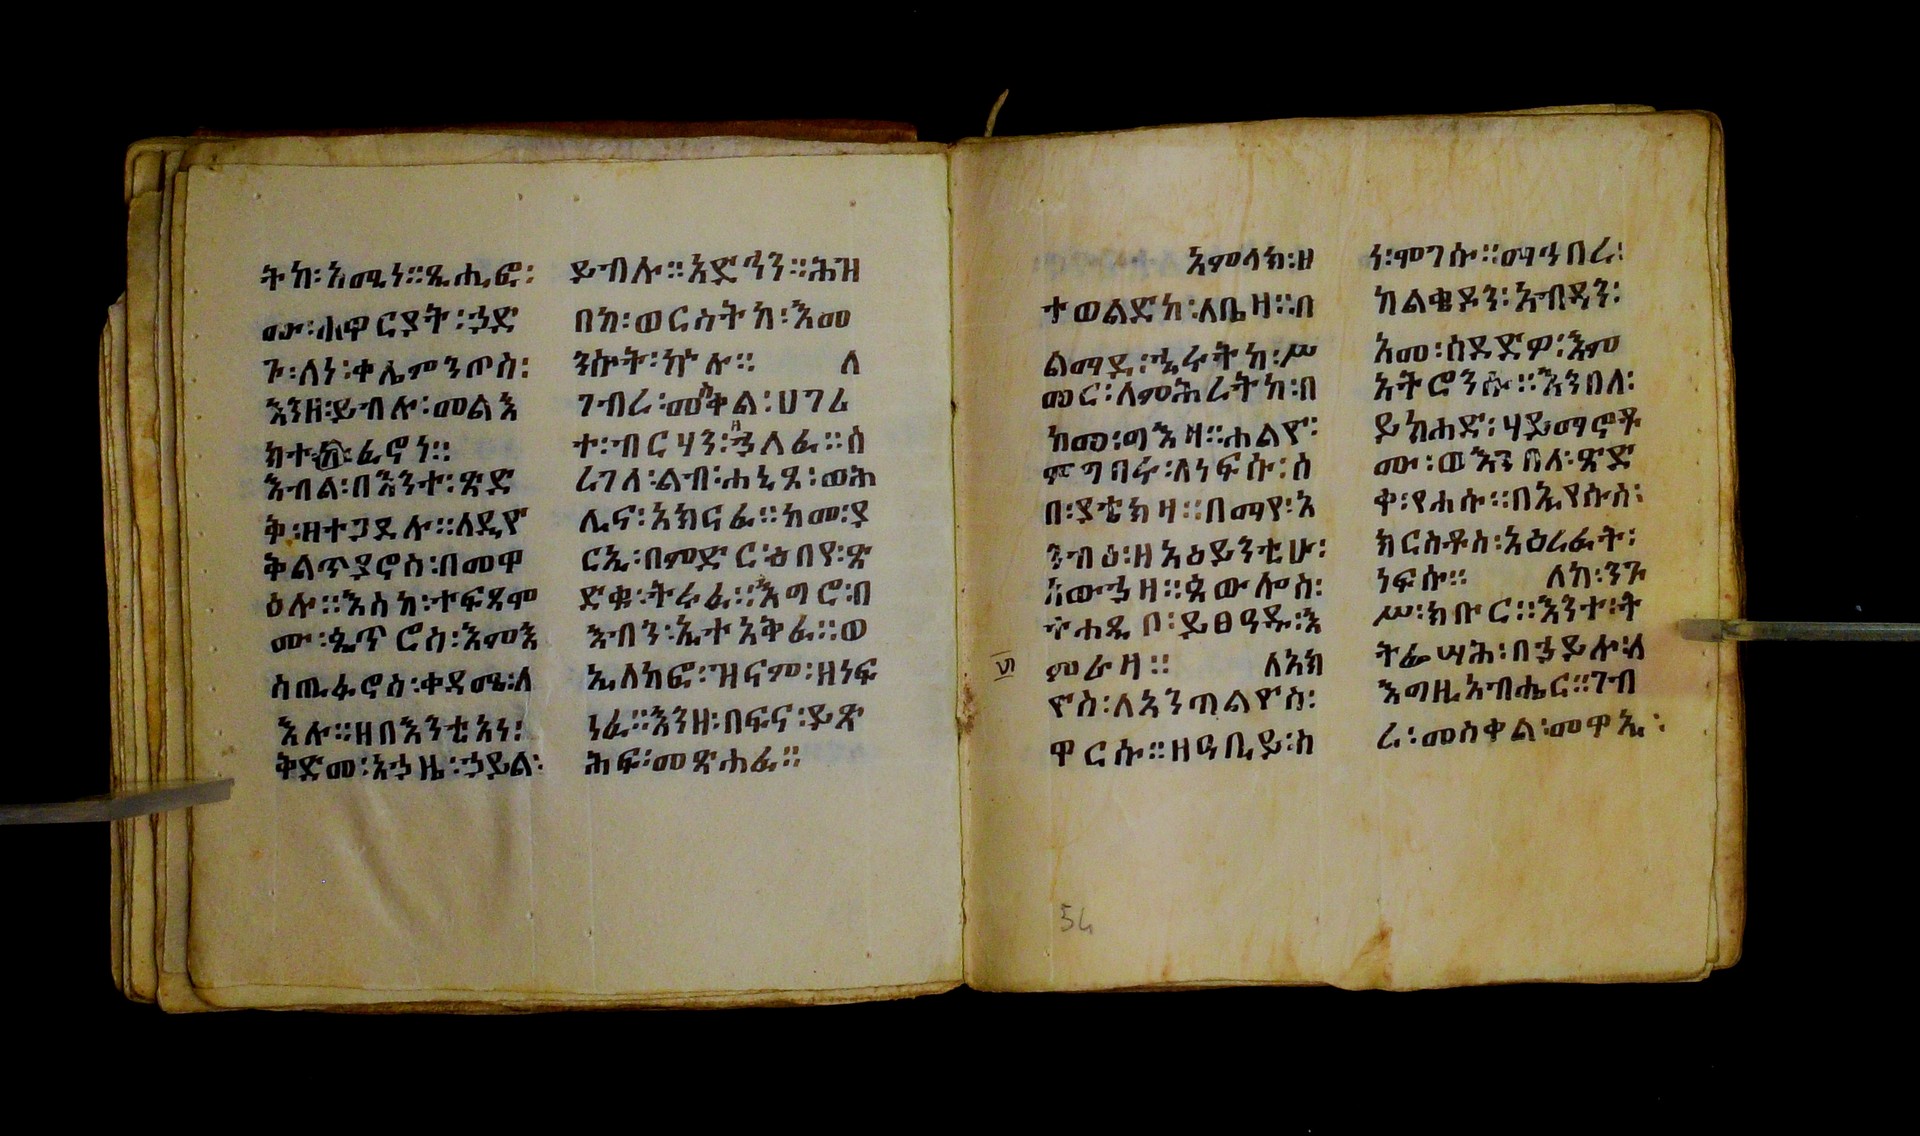 ትከ፡አሚነ።ጸሐፎ፡
ሙ፡ሐዋርያት፡ኃድ
ጉ፡ለነ፡ቀሌምንጦስ፡
እንዘ፡ይብሉ፡መልእ
ክተ፡ፈኖነ።
እብል፡በእንተ፡ጽድ
ቅ፡ዘተጋደሉ።ለዲዮ
ቅልጥያኖስ፡በመዋ
ዕሉ።እስከ፡ተፍጻሞ
ሙ፡ጴጥሮስ፡እምእ
ስጢፋኖስ፡ቀዳሜ፡ለ
እሉ።ዘበእንቲአነ፡
ቅድመ፡አኃዜ፡ኃይል፡
ይብሉ።አድኅን።ሕዝ
በከ፡ወርስትከ፡እመ
ንሱት፡ኵሉ። ለ
ገብረ፡መስቀል፡ሀገሪ
ተ፡ብርሃን፡ኀለፈ።ሰ
ረገለ፡ልብ፡ሐኒጾ፡ወሕ
ሊና፡አክናፈ።ከመ፡ያ
ርኢ፡በምድር፡ዕበየ፡ጽ
ድቁ፡ትሩፈ።እግሮ፡በ
እብን፡ኢተአቅፈ።ወ
ኢለከፎ፡ዝናም፡ዘነፍ
ነፈ።እንዘ፡በፍና፡ይጽ
ሕፍ፡መጽሐፈ።
አምላክ፡ዘ
ተወልድከ፡ለቤዛ።በ
ልማደ፡ኂሩትከ፡ሥ
መር፡ለምሕረትከ፡በ
ከመ፡ግእዛ።ሐልዮ፡
ምግበሩ፡ለነፍሱ፡ሶ
በ፡ያቴክዛ።በማየ፡አ
ንብዕ፡ዘአዕይንቲሁ፡
አውኀዘ።ጳውሎስ፡
ተሐዲቦ፡ይፀዓዱ፡እ
መራዛ። ለአክ
ዮስ፡ለአንጣልዮስ፡
ዋርሱ።ዘዓቢይ፡ስ
ነ፡ሞገሱ።ማኅበረ፡
ከልቄዶን፡አብዳን፡
አመ፡ሰደድዎ፡እም
አትሮንሱ።እንበለ፡
ይክሐድ፡ሃይማኖቶ
ሙ፡ወእንበለ፡ጽድ
ቀ፡የሐሱ።በኢየሱስ፡
ክርስቶስ፡አዕረፈት፡
ነፍሱ። ለከ፡ንጉ
ሥ፡ክቡር።እንተ፡ት
ትፌሣሕ፡በኃይሉ፡ለ
እግዚአብሔር።ገብ
ረ፡መስቀል፡መዋኢ፡
54